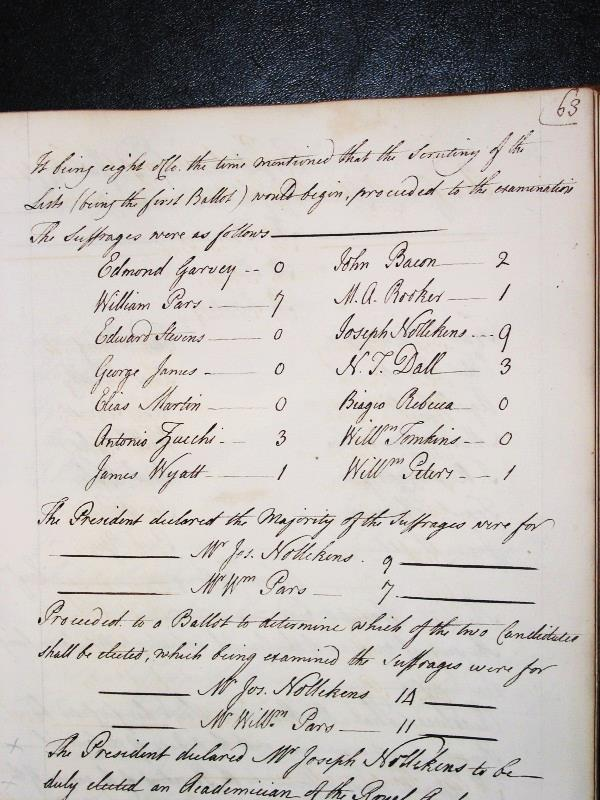 63
It being eight o'Clo. the time mentioned that the Scrutiny of the
Lists (being the first Ballot) would begin, proceeded to the examination
The Suffrages were as follows
Edmond Garvey -- 0 John Bacon 2
William Pars. 7 M. A. Rooker 1
Edward Stevens 0 Joseph Nollekens -- 9
George James 0 N. T. Dall 3
Elias Martin 0 Biagio Rebecca 0
Antonio Zucchi 3 Willm Tomkins 0
James Wyatt 1 Willm Peters 1
The President declared the Majority of the Suffrages were for
Mr Jos. Nollekens. 9
Mr Wm Pars 7.
Proceeded to a Ballot to determine which of the two Candidates
shall be elected, which being examined the Suffrages were for
Mr Jos. Nollekens 14
Mr Willm Pars 11
The President declared Mr Joseph Nollekens to be
duly elected an Academician of the Royal